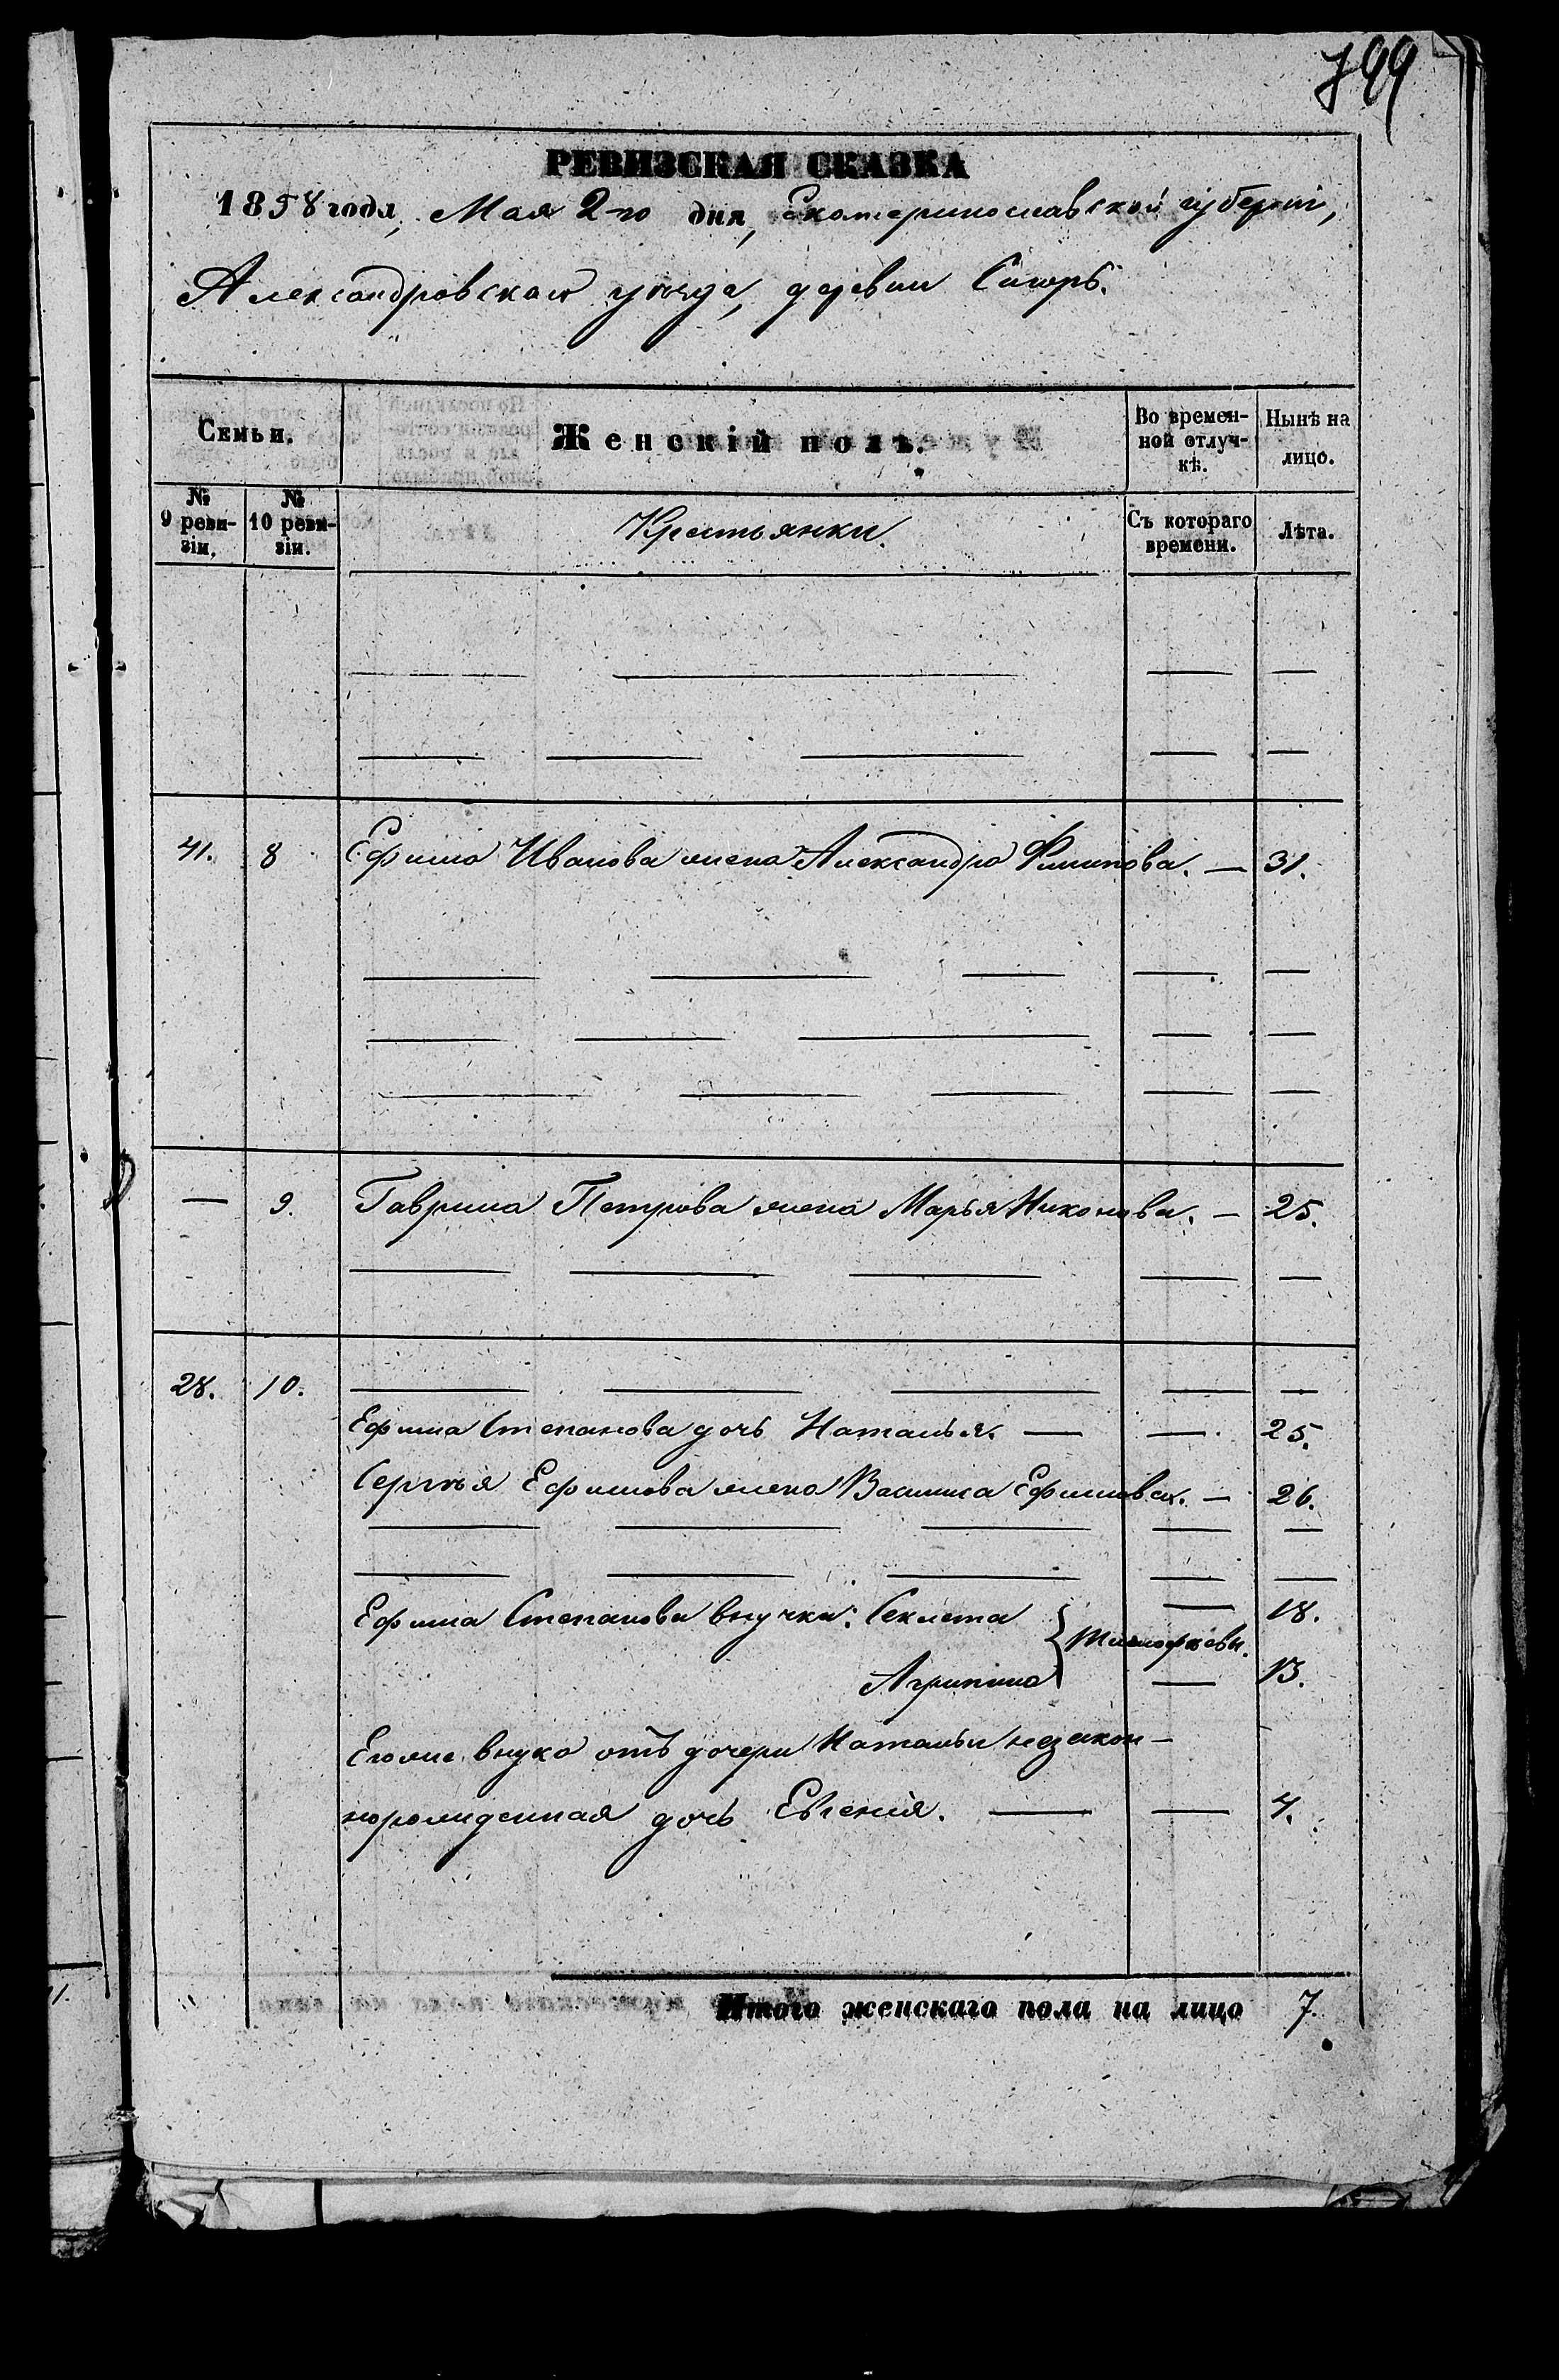 799
РЕВИЗСКАЯ СКАЗКА
1858 года, Мая 2-го дня, Екатеринославской губерніи,
Александровскаго уѣзда, деревни
Семьи. Женскій полъ. Во времен-ной отлуч-кѣ. Нынѣ на лицо.
№ 9 реви-зіи. № 10 реви-зіи. Крестьянки. Съ котораго времени. Лѣта.
41. 8 Ефима Иванова жена Александра Филипова. — 31.
— 9. Гаврила Петрова жена Марья Никонова. — 25.
28. 10.
Ефима Степанова дочь Наталья. — — 25.
Сергѣя Ефимова жена Василиса Ефимова. — 26.
Ефима Степанова внучки: Секлета — 18.
Тимофѣевы.
Агрипина — 13.
Его же внука отъ дочери Натальи незакон-
норожденная дочь Евгенія. — — 4.
Итого женскаго пола на лицо 7.